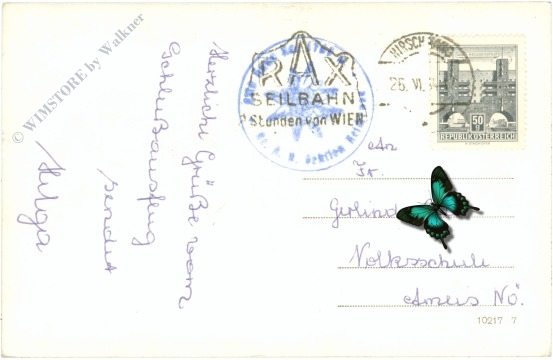 © WIMSTORE by Walkner
Herzliche Grüße vom
Schlußausflug
sendet
Helga
RAX
SEILBAHN
Stunden von WIEN
HIRSCHWANG
26. VI.
50 g
REPUBLIK ÖSTERREICH
An
Fr.
Gerlind
Volksschule
Ameis NÖ.
10217 7